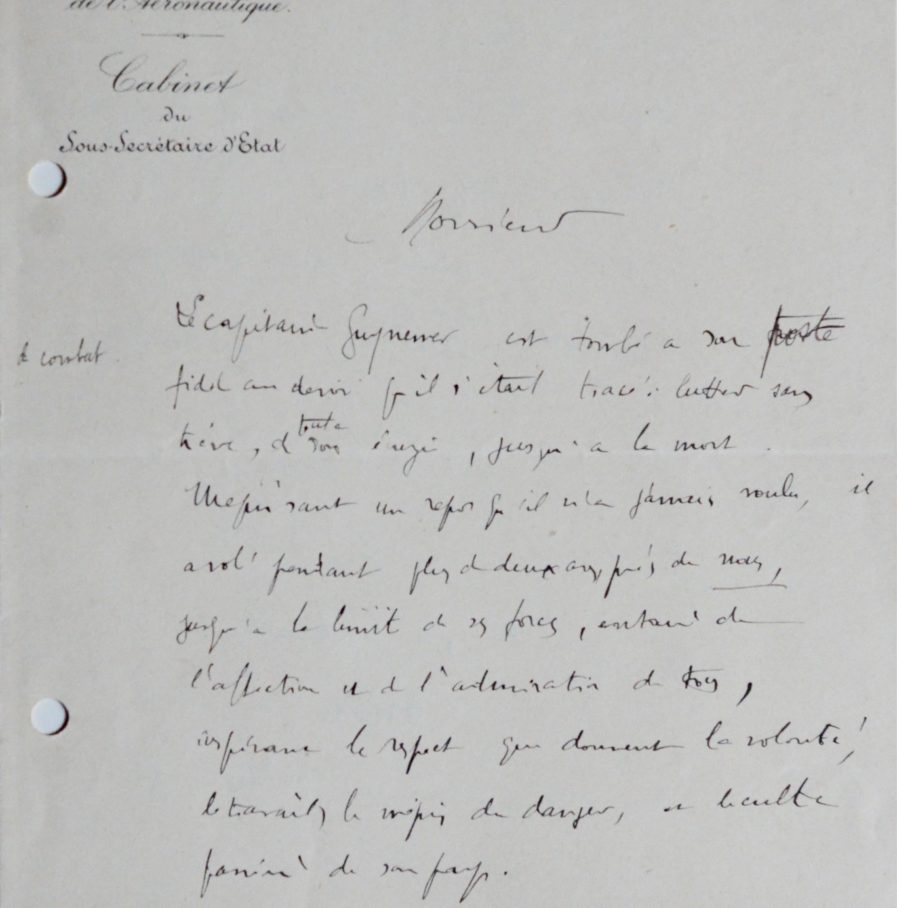 de l'Aéronautique.
Cabinet
du
Sous-Secrétaire d'Etat
Monsieur
Le capitaine Guynemer est tombé à son poste
de combat.
fidèle au devoir qu'il s'était tracé : lutter sans
trêve, de toute son énergie, jusqu'à la mort.
Méprisant un repos qu'il n'a jamais voulu, il
a volé pendant plus de deux ans près de nous,
jusqu'à la limite de ses forces, entouré de
l'affection et de l'admiration de tous,
inspirant le respect que donnent la volonté,
le travail, le mépris du danger, et le culte
passionné de son pays.